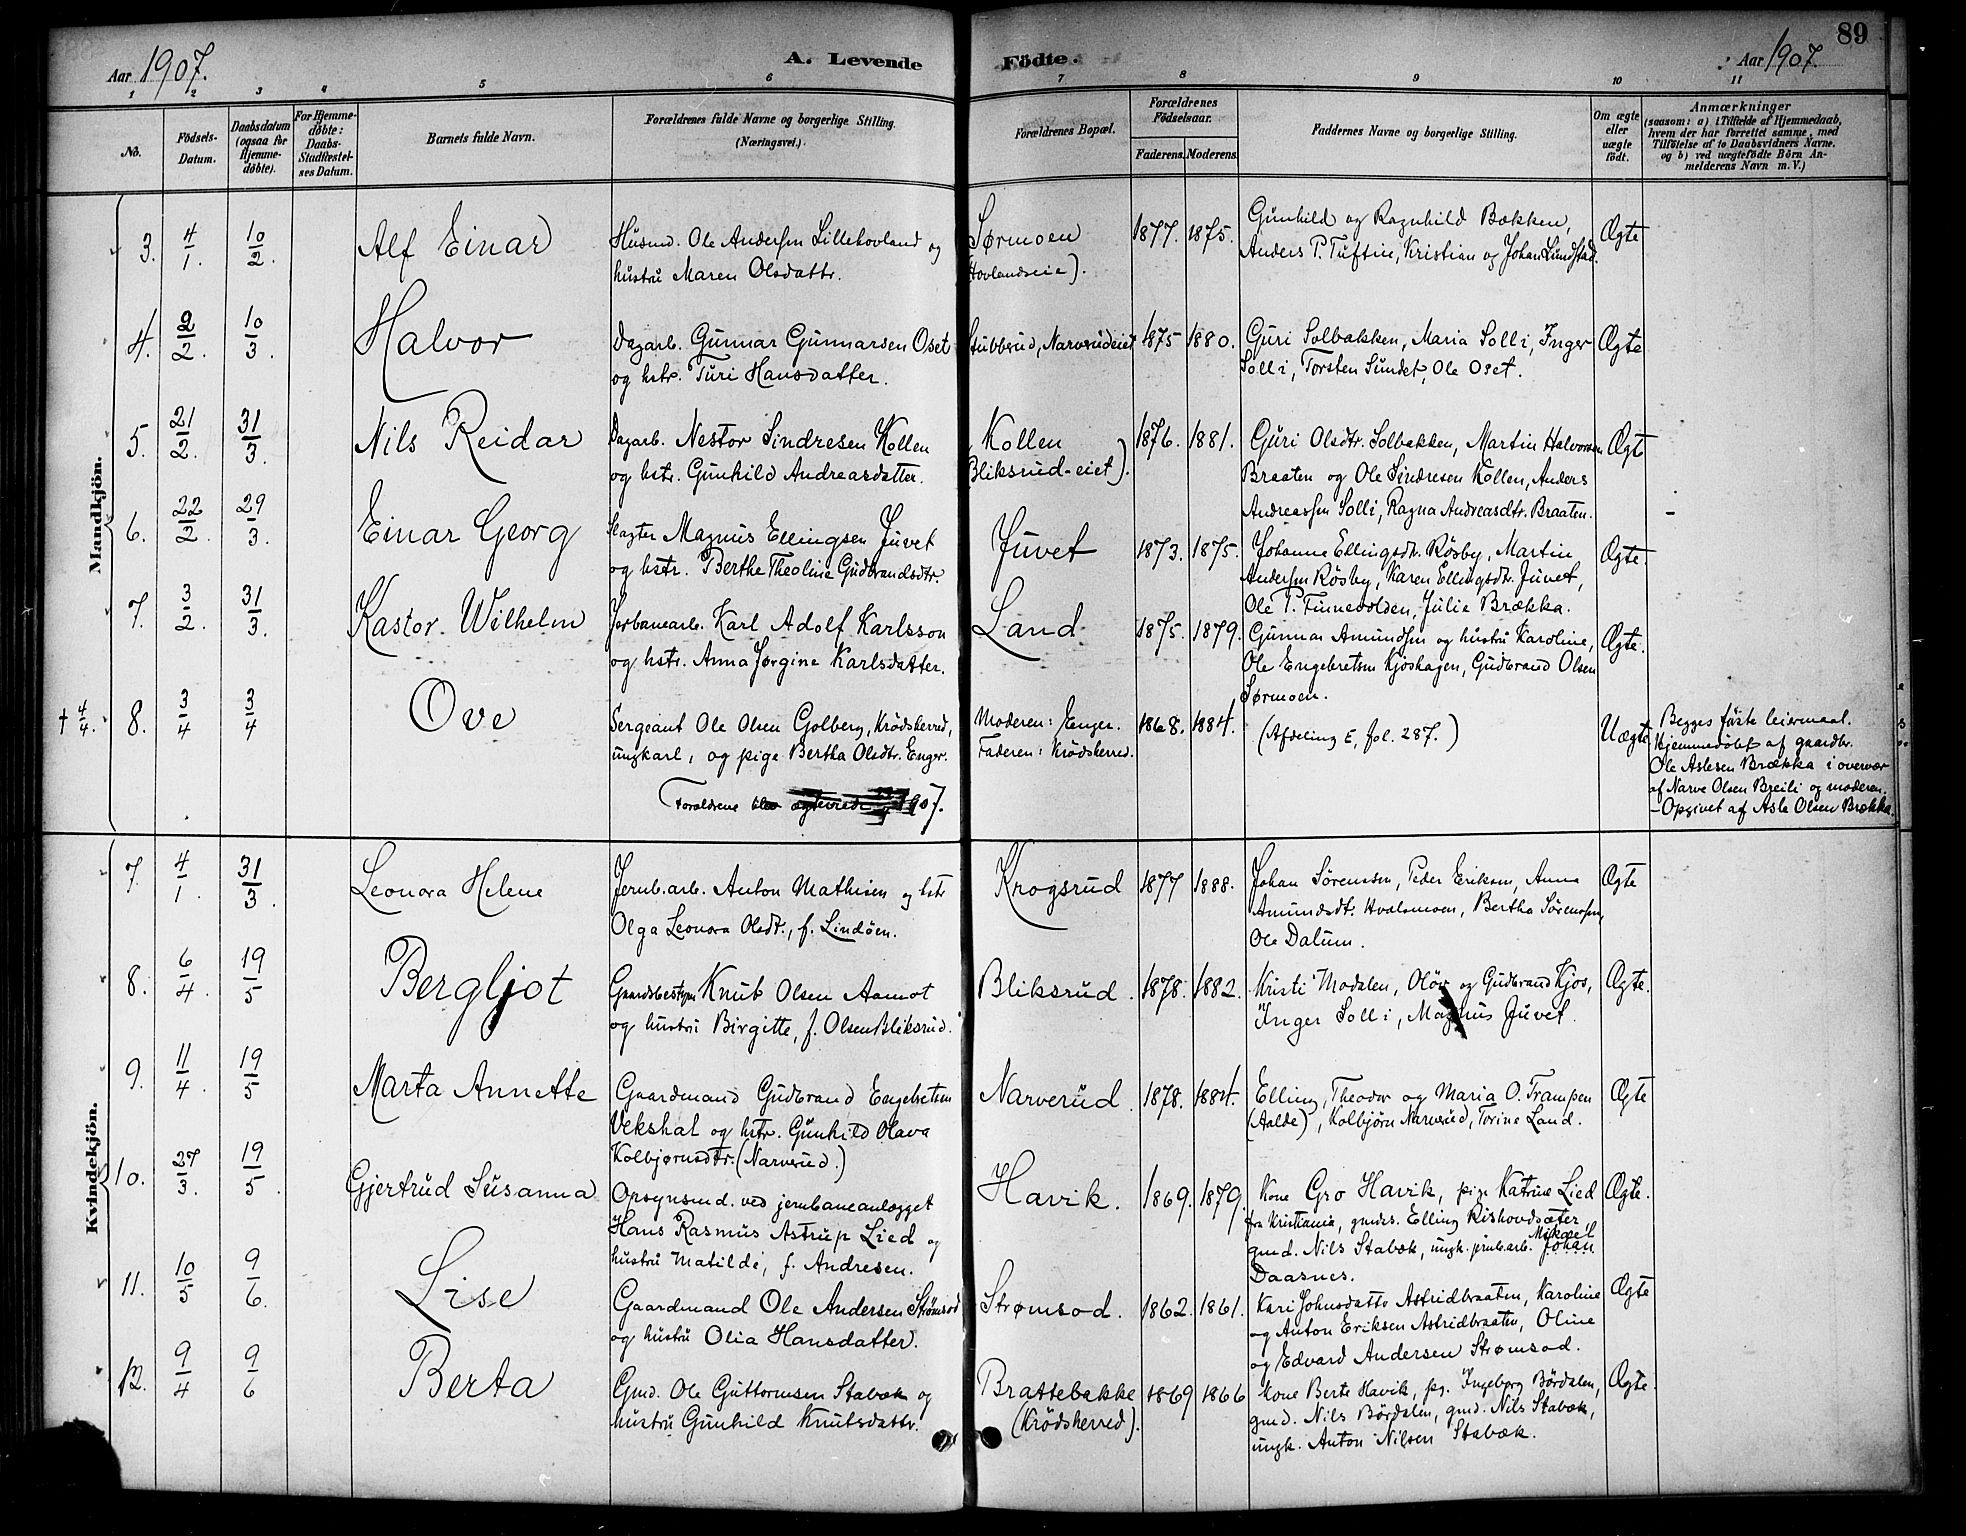 89
Aar 1907.
A. Levende Födte.
Aar 1907.
1 2 3 4 5 6 7 8 9 10 11
No.
Födsels-Datum.
Daabsdatum (ogsaa for Hjemme-døbte).
For Hjemme-døbte: Daabs-Stadfæstel-ses Datum.
Barnets fulde Navn.
Forældrenes fulde Navne og borgerlige Stilling. (Næringsvei.)
Forældrenes Bopæl.
Forældrenes Födselsaar.
Faderens. Moderens.
Faddernes Navne og borgerlige Stilling.
Om ægte eller uægte født.
Anmærkninger
(saasom: a) i Tilfælde af Hjemmedaab,
hvem der har forrettet samme, med
Tilföielse af to Daabsvidners Navne.
og b) ved uægtefödte Börn An-
melderens Navn m. V.)
Mandkjön.
3. 4/1. 10/2. Alf Einar
Husmd. Ole Andersen Lillehovland og
hustru Maren Olsdattr.
Sørmoen
(Hovlandseie).
1877. 1875.
Gunhild og Ragnhild Bækken,
Anders P. Tuftin, Kristian og Johan Lundstad.
Ægte
4. 2/2. 10/3. Halvor
Dagarb. Gunnar Gunnarsen Oset
og hstr. Turi Hansdatter.
Stubberud, Narverudeiet
1875 1880.
Guri Solbakken, Maria Solli, Inger
Solli, Torsten Sundet, Ole Oset.
Ægte
5. 21/2. 31/3. Nils Reidar
Dagarb. Nestor Sindresen Kollen
og hstr. Gunhild Andreasdatter.
Kollen
(Bliksrud-eiet).
1876. 1881.
Guri Olsdtr. Solbakken, Martin Halvorsen
Braaten og Ole Sindresen Kollen, Anders
Andreassen Solli, Ragna Andreasdtr. Braaten.
Ægte
6. 22/2. 29/3. Einar Georg
Slagter Magnus Ellingsen Juvet
og hstr. Berthe Theoline Gudbrandsdtr.
Juvet
1873. 1875.
Johanne Ellingsdtr. Røsby, Martin
Andersen Røsby, Karen Ellingsdtr. Juvet,
Ole P. Finnevolden, Julie Brækka.
Ægte.
7. 3/2. 31/3. Kastor Wilhelm
Jerbanearb. Karl Adolf Karlsson
og hstr. Anna Jørgine Karlsdatter.
Land
1875. 1879.
Gunnar Amundsen og hustru Karoline,
Ole Engebretsen Kjøshagen, Gudbrand Olsen
Sørmoen.
Ægte.
† 4/4. 8. 3/4 3/4 Ove
Sergeant Ole Olsen Golberg, Krödsherred,
ungkarl, og pige Bertha Olsdtr. Enger.
Forældrene blev ægteviede 1907.
Moderen: Enger.
Faderen: Krödsherred.
1868. 1884.
(Afdeling E, fol. 287.)
Uægte
Begges første leiermaal.
Hjemmedöbt af gaardbr.
Ole Aslesen Brækka i overvær
af Narve Olsen Breili og moderen.
– Opgivet af Asle Olsen Brækka.
Kvindekjön.
7. 4/1. 31/3. Leonora Helene
Jernb.arb. Anton Mathisen og hstr
Olga Leonora Olsdt., f. Lindöen.
Krogsrud
1877 1888.
Johan Sörensen, Peder Eriksen, Anna
Amundsdt. Hvalsmoen, Bertha Sörensen,
Ole Dalum.
Ægte
8. 6/4. 19/5 Bergljot
Gaardsbestyrer Knut Olsen Aamot
og hustru Birgitte, f. Olsen Bliksrud.
Bliksrud.
1878. 1882.
Kristi Modalen, Olöv og Gudbrand Kjos,
Inger Solli, Magnus Juvet.
Ægte.
9. 11/4. 19/5 Marta Annette
Gaardmand Gudbrand Engebretsen
Vekshal og hstr. Gunhild Olava
Kolbjørnsdtr. (Narverud.)
Narverud.
1878. 1884.
Elling, Theodor og Maria O. Trampen
(Aalde), Kolbjörn Narverud, Torine Land.
Ægte
10. 27/3. 19/5. Gjertrud Susanna
Opsynsmd. ved jernbaneanlægget
Hans Rasmus Astrup Lied og
hustru Matilde, f. Andresen.
Havik.
1869. 1879.
Kone Gro Havik, pige Katrine Lied
fra Kristiania, gmdss. Elling Rishovdsæter,
gmd. Nils Stabæk, ungk. jrnb.arb. Mikael Johan
Daasnes.
Ægte.
11. 10/5 9/6. Lise
Gaardmand Ole Andersen Strømsod
og hustru Olia Hansdatter.
Strømsod.
1862. 1861.
Kari Johnsdatte Astridbraaten, Karoline
og Anton Eriksen Astridbraaten, Oline
og Edvard Andersen Strømsod.
Ægte
12. 9/4 9/6 Berta
Gmd. Ole Guttormsen Stabæk og
hustru Gunhild Knutsdattr.
Brattebakke
(Krödsherred).
1869 1866
Kone Berte Havik, pg. Ingeborg Bördalen,
gmd. Nils Bördalen, gmd. Nils Stabæk,
ungk. Anton Nilsen Stabæk.
Ægte.